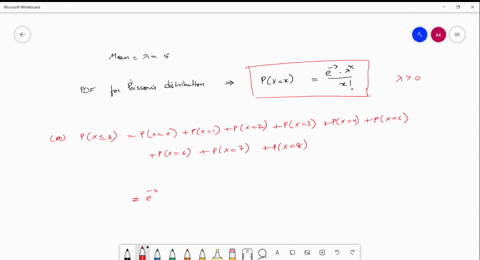 Microsoft Whiteboard
AK
Mean = λ = 5
PDF for Poisson's distribution ⇒ P(X=x) = e^-λ · λ^x / x! λ > 0
(a) P(X≤8) = P(X=0) + P(X=1) + P(X=2) + P(X=3) + P(X=4) + P(X=5)
+ P(X=6) + P(X=7) + P(X=8)
= e^-5